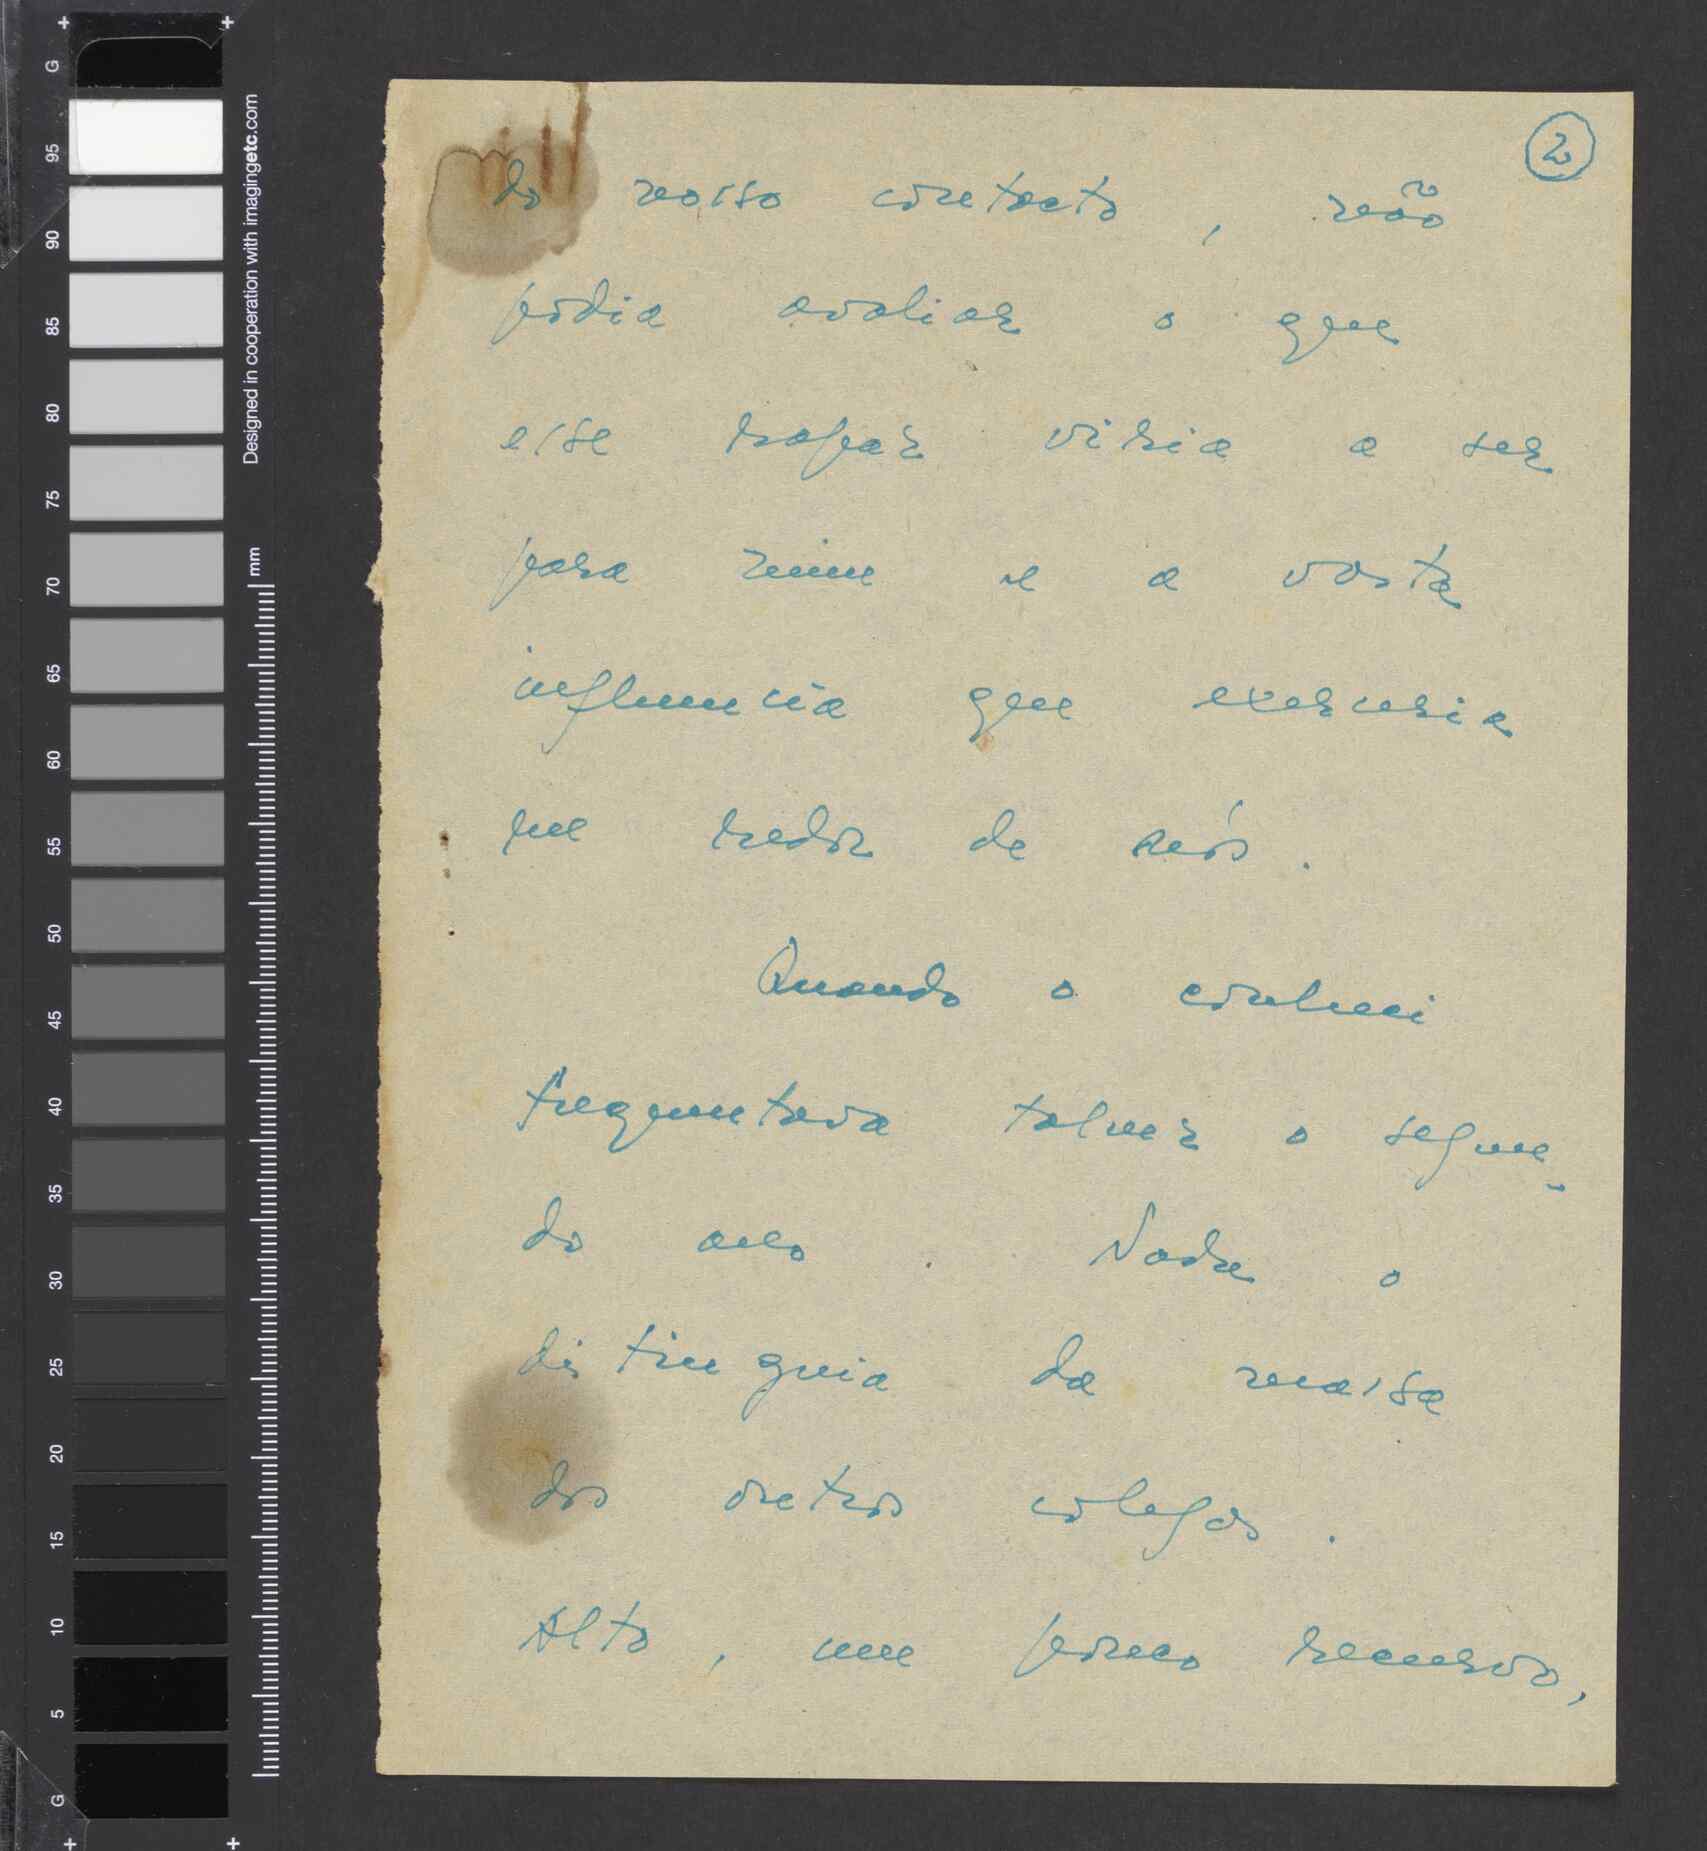 G
95
90
85
80
75
70
65
60
55
50
45
40
35
30
25
20
15
10
5
G
Designed in cooperation with imagingetc.com
mm
2
do nosso contacto, não
podia avaliar o que
esse rapaz viria a ser
para mim e a vasta
influencia que exerceria
em redor de nós.
Quando o conheci
frequentava talvez o segun-
do ano. Nada o
distinguia da massa
dos outros colegas.
Alto, um pouco recurvo,